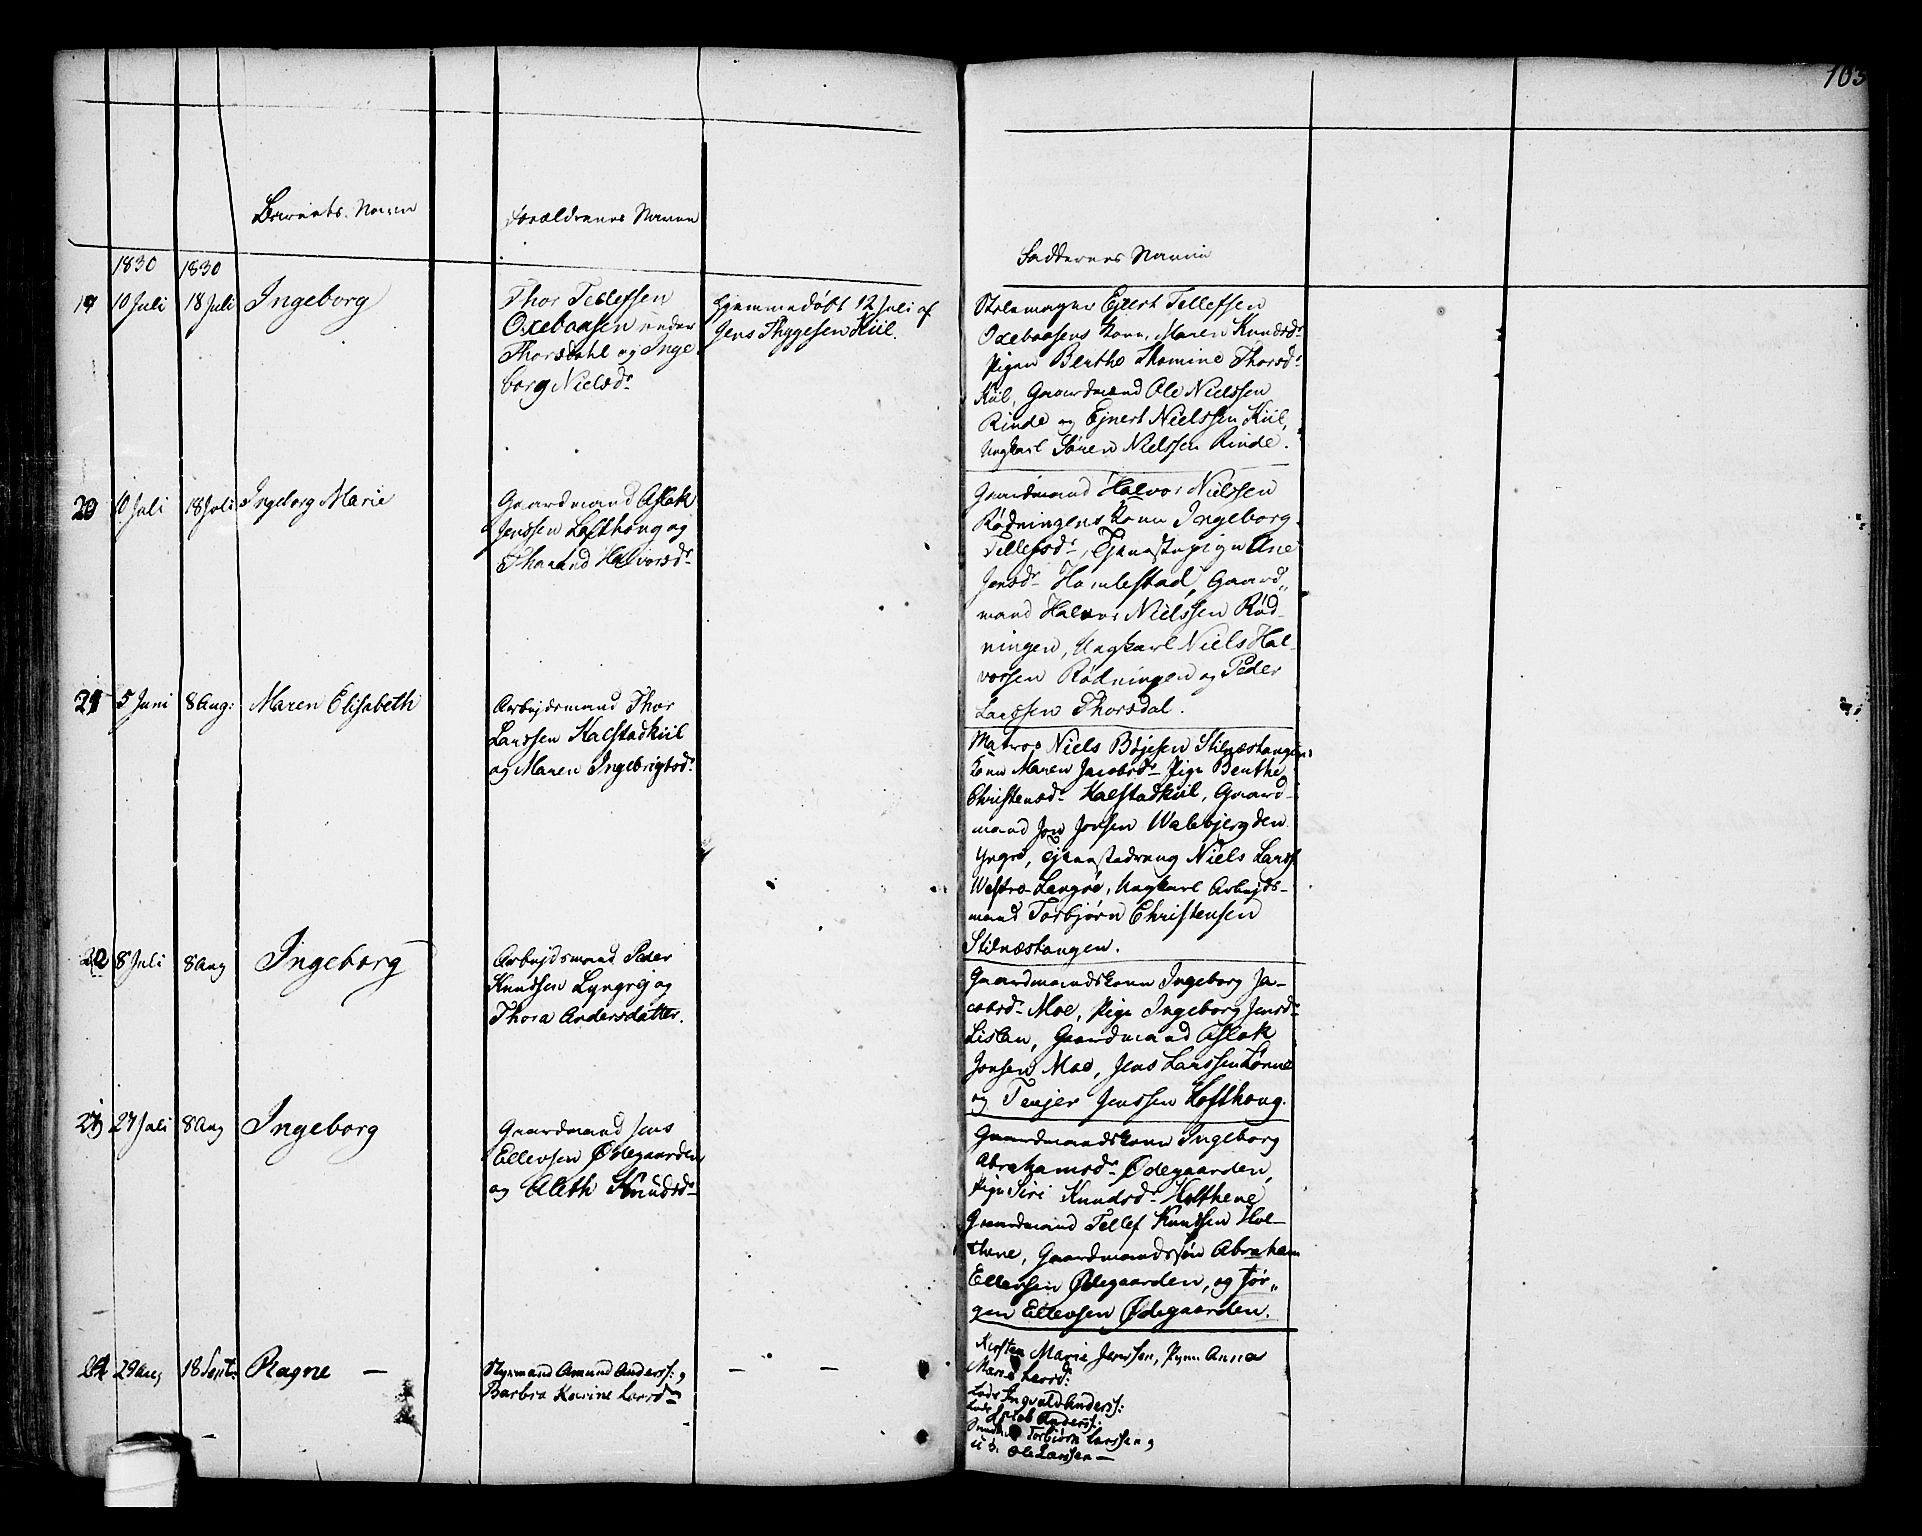 103
Barnets Navn
Forældrenes Navne
Faddernes Navne
1830 1830
19 10 Juli 18 Juli Ingeborg
Thor Tellefsen
Oxebaasen under
Thorsdahl og Inge
borg Nielsdr
hjemmedøbt 12 Juli af
Jens Thygesen Kiil.
Ejert Tellefsen
Oxebaasens Kone, Maren Knudsdr
Pigen Berthe Thomine Thorsdr
Kiil, Gaardmand Ole Nielssen
Rinde og Ejnert Nielssen Kiil,
Ungkarl Søren Nielssen Rinde.
20 10 Juli 18 Juli Ingeborg Marie
Gaardmand Aslak
Jenssen Lofthoug og
Halvorsdr
Gaardmand Halvor Nielssen
Rødningens Kone Ingeborg
Tellefsdr, Tjenestepige Ane
Jensdr Hamlestad, Gaard„
mand Halvor Nielssen Rød-
ningen, Ungkarl Niels Hal-
vorssen Rødningen og Peder
Larssen Thorsdal.
21 5 Juni 8 Aug: Maren Elisabeth
Arbejdsmand Thor
Larssen Kalstadkiil
og Maren Ingebrigtsdr
Matros Niels Bøjesen Stilnæstangens
Kone Maren Jacobsdr Pige Benthe
Christensdr Kalstadkiil, Gaard-
mand Jon Jonsen Walebjerg den
Yngre, Tjenestedreng Niels Larss
Westre-Langøe, Ungkarl Arbejds-
mand Torbjørn Christensen
Stilnæstangen.
22 8 Juli 8 Aug Ingeborg
Arbejdsmand Peder
Knudsen Lyngrej og
Thora Andersdatter.
Gaardmandskone Ingeborg Ja-
cobsdr Moe, Pige Ingeborg Jensdr
Gaardmand Aslak
Jonsen Moe, Jens Larssen Lønne
og Terjer Jenssen Lofthoug.
23 27 Juli 8 Aug Ingeborg
Gaardmand Jens
Ellevsen Ødegaarden
og Aleth Knudsdr
Gaardmandskone Ingeborg
Abrahamsdr Ødegaarden,
Pige Siri Knudsdr Holthene
Gaardmand Tellef Knudsen Hol-
thene, Gaardmandssøn Abraham
Ellevsen Ødegaarden, og Jør„
gen Ellevsen Ødegaarden.
24 29 Aug 18 Sept: Ragne —
Styrmand Amund Anderss: og
Barbra Karine Larsdr
— —
Kirsten Marie Jenssen, Pigen Anne
Marie Larsd:
Lods Ingvald Anderss:
Lods Jacob Anderss:
Torbjørn Larssen og
Ole Larssen —